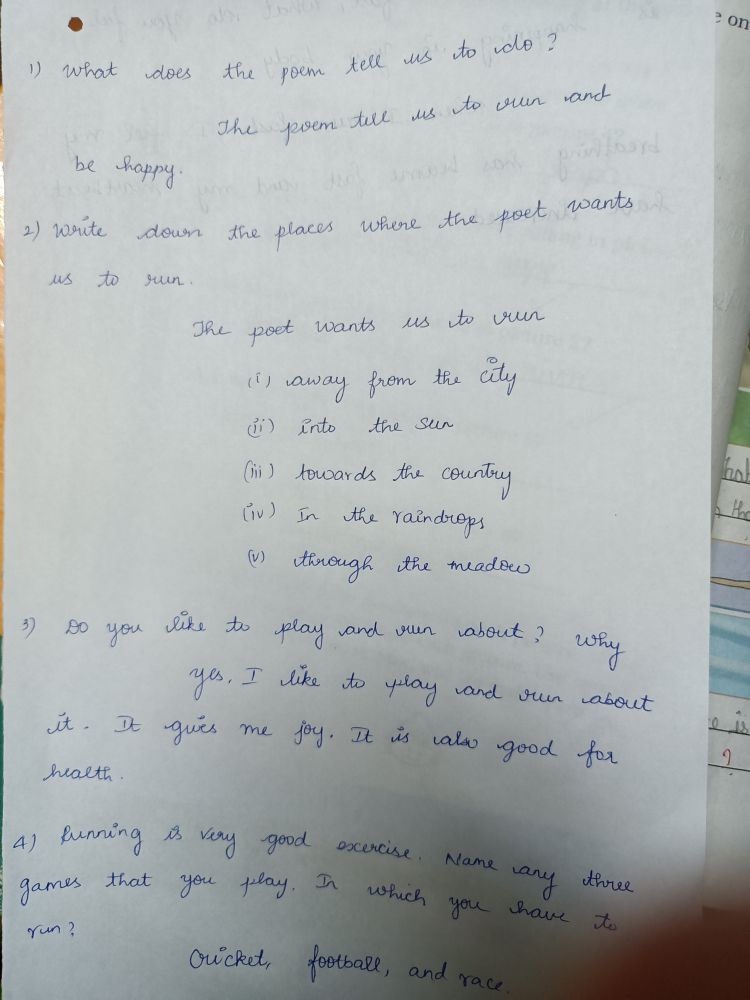 1) What does the poem tell us to do?
The poem tell us to run and
be happy.
2) Write down the places where the poet wants
us to run.
The poet wants us to run
(i) away from the city
(ii) into the sun
(iii) towards the country
(iv) In the raindrops
(v) through the meadow
3) Do you like to play and run about? Why
yes, I like to play and run about
it. It gives me joy. It is also good for
health.
4) Running is very good exercise. Name any three
games that you play. In which you have to
run?
Cricket, football, and race.
e on